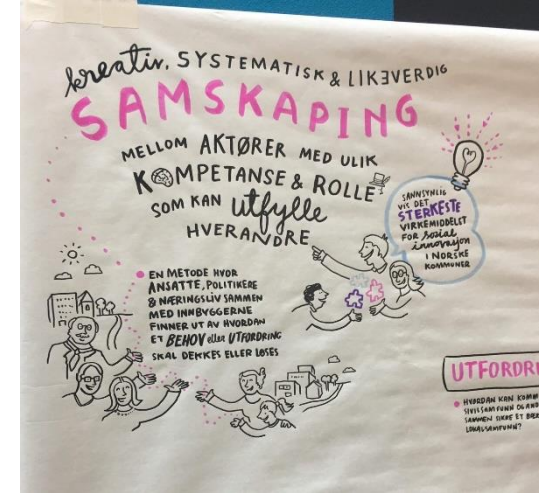 kreativ, SYSTEMATISK & LIKEVERDIG
SAMSKAPING
MELLOM AKTØRER MED ULIK
KOMPETANSE & ROLLE
SOM KAN utfylle
HVERANDRE
SANNSYNLIG
VIS DET
STERKESTE
VIRKEMIDDELET
FOR Sosial
innovasjon
I NORSKE
KOMMUNER
• EN METODE HVOR
ANSATTE, POLITIKERE
& NÆRINGSLIV SAMMEN
MED INNBYGGERNE
FINNER UT AV HVORDAN
ET BEHOV eller UTFORDRING
SKAL DEKKES ELLER LØSES
UTFORDR
• HVORDAN KAN KOMM
SIVILSAMFUNN OG AND
SAMMEN SIKRE ET
LOKALSAMFUNN?